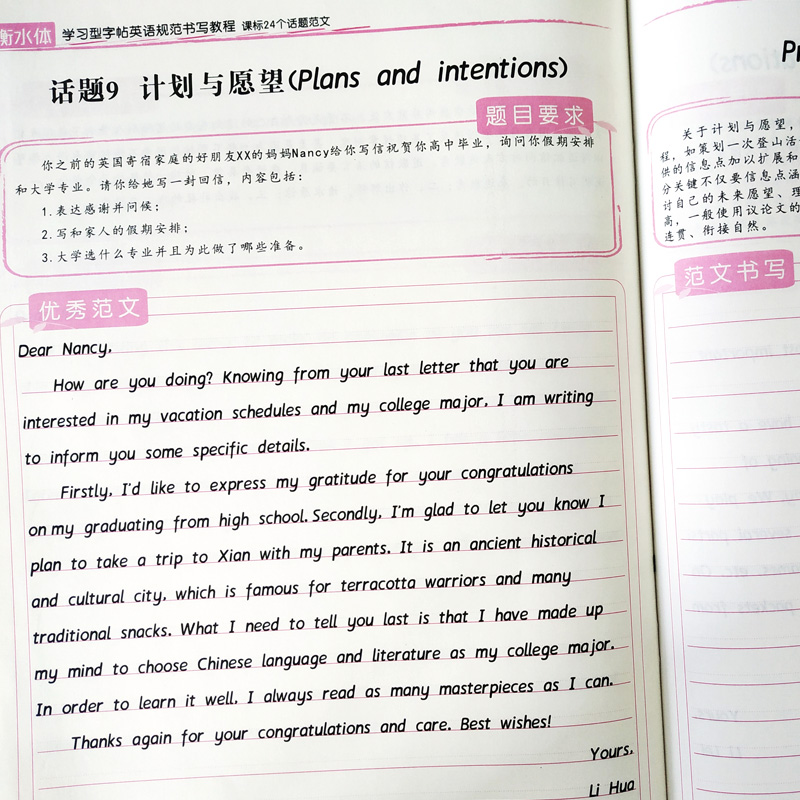 衡水体 学习型字帖英语规范书写教程 课标24个话题范文
话题9 计划与愿望(Plans and intentions)
题目要求
你之前的英国寄宿家庭的好朋友XX的妈妈Nancy给你写信祝贺你高中毕业，询问你假期安排
和大学专业。请你给她写一封回信，内容包括：
1.表达感谢并问候；
2.写和家人的假期安排；
3.大学选什么专业并且为此做了哪些准备。
优秀范文
Dear Nancy,
How are you doing? Knowing from your last letter that you are
interested in my vacation schedules and my college major, I am writing
to inform you some specific details.
Firstly, I'd like to express my gratitude for your congratulations
on my graduating from high school. Secondly, I'm glad to let you know I
plan to take a trip to Xian with my parents. It is an ancient historical
and cultural city, which is famous for terracotta warriors and many
traditional snacks. What I need to tell you last is that I have made up
my mind to choose Chinese language and literature as my college major.
In order to learn it well, I always read as many masterpieces as I can.
Thanks again for your congratulations and care. Best wishes!
Yours,
Li Hua
关于计划与愿望，
程，如策划一次登山活
供的信息点加以扩展和
分关键不仅要信息点涵
讨自己的未来愿望、理
高，一般使用议论文的
连贯、衔接自然。
范文书写